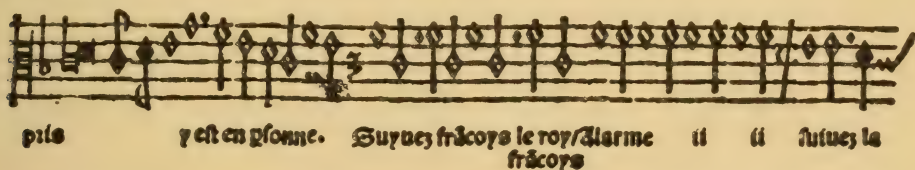 pris y est en psonne. Suyuez frãcoys le roy/Alarme ii ii suiuez la
frãcoys